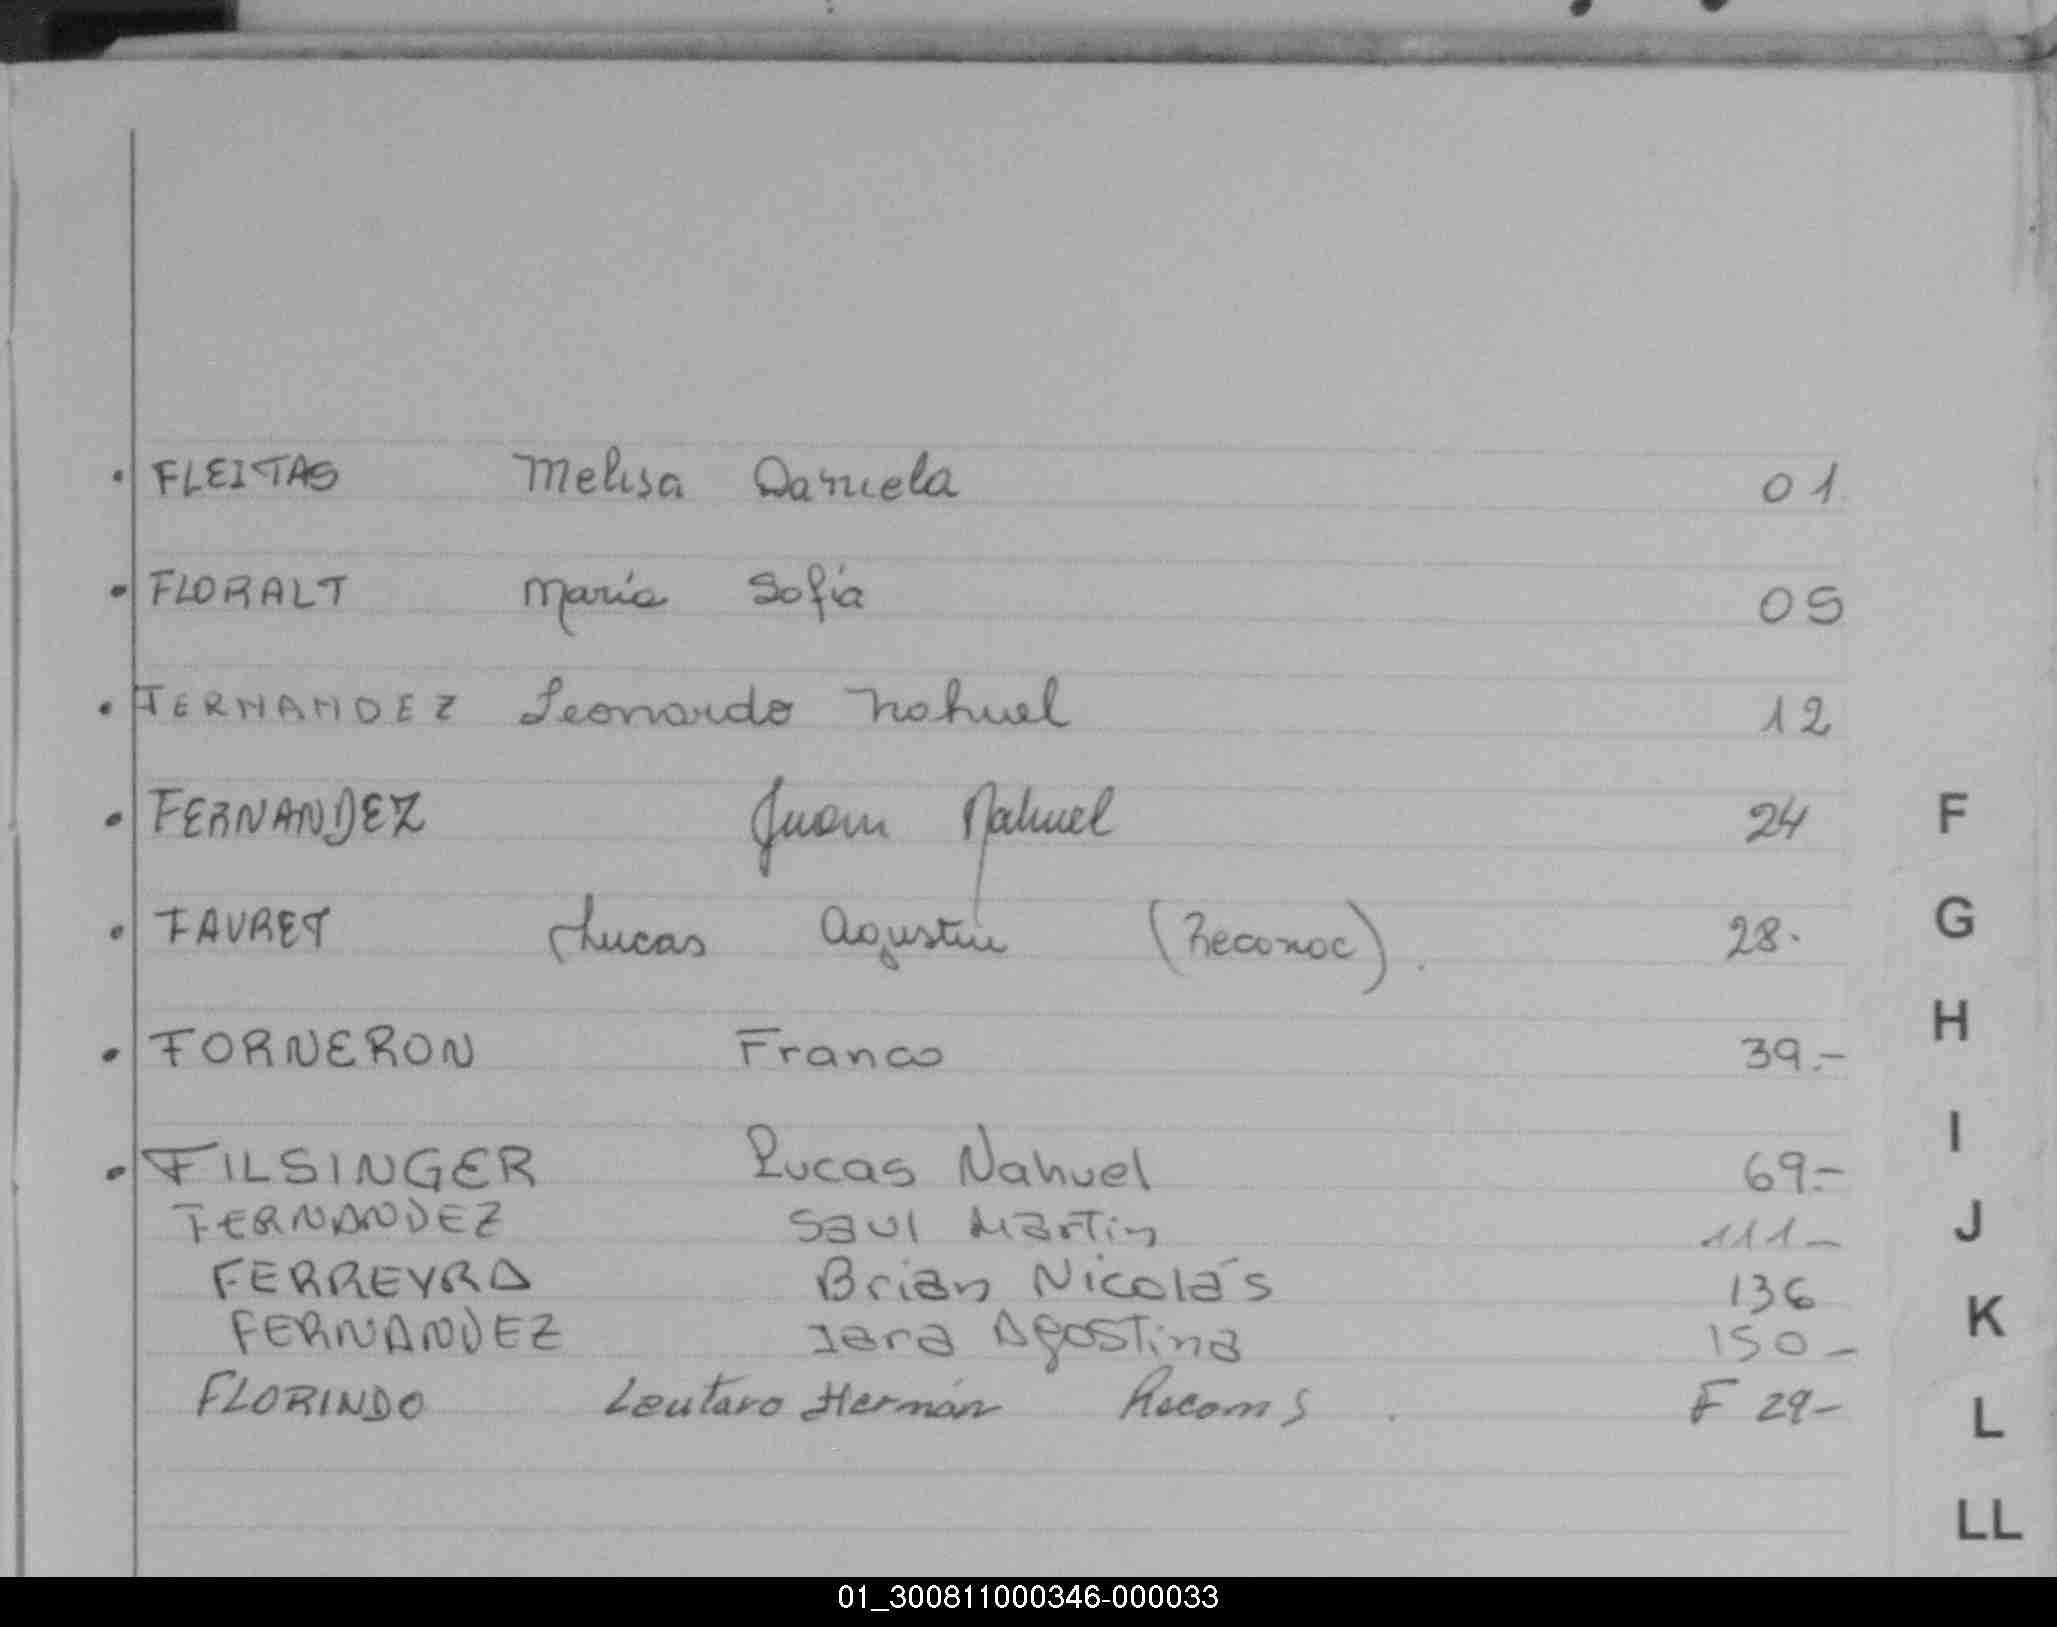 • FLEITAS Melisa Daniela 01
• FLORALT María Sofía 05
• FERNANDEZ Leonardo Nahuel 12
• FERNANDEZ Juan Nahuel 24
F
• FAVRET Lucas Agustin (Reconoc). 28.
G
H
• FORNERON Franco 39.-
I
• FILSINGER Lucas Nahuel 69.-
FERNANDEZ Saul Martin 111-
J
FERREYRA Brian Nicolás 136
K
FERNANDEZ Iara Agostina 150-
FLORINDO Leutaro Hernán F 29-
L
LL
01_300811000346-000033